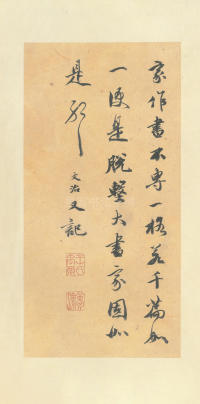 家作書不專一格若千篇如
一便是脫墼大書家固如
是耶
文治又記